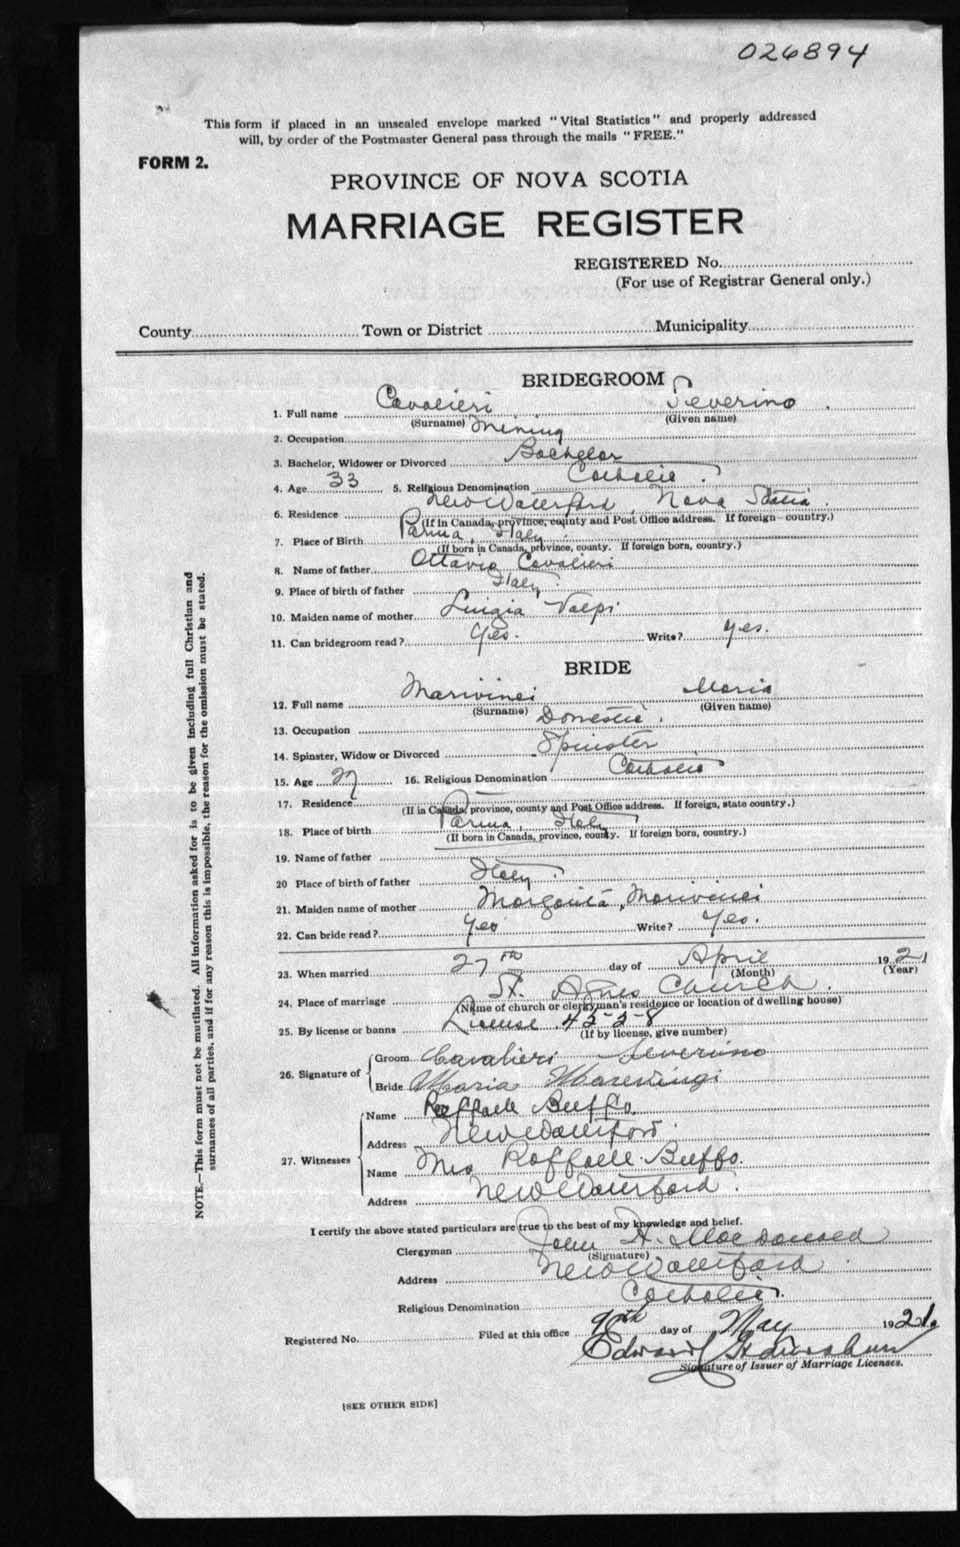 026894
This form if placed in an unsealed envelope marked "Vital Statistics" and properly addressed
will, by order of the Postmaster General pass through the mails "FREE."
FORM 2.
PROVINCE OF NOVA SCOTIA
MARRIAGE REGISTER
REGISTERED No.
(For use of Registrar General only.)
County Town or District Municipality
BRIDEGROOM
1. Full name Cavalieri Severino
(Surname) (Given name)
2. Occupation Mining
3. Bachelor, Widower or Divorced Bachelor
4. Age 33 5. Religious Denomination Catholic
6. Residence New Waterford, Nova Scotia
(If in Canada, province, county and Post Office address. If foreign country.)
7. Place of Birth Parma, Italy
(If born in Canada, province, county. If foreign born, country.)
8. Name of father Ottavio Cavalieri
9. Place of birth of father Italy
10. Maiden name of mother Luigia Valpi
11. Can bridegroom read? Yes. Write? Yes.
BRIDE
12. Full name Marivinci Maria
(Surname) (Given name)
13. Occupation Domestic.
14. Spinster, Widow or Divorced Spinster
15. Age 27 16. Religious Denomination Catholic
17. Residence
(If in Canada, province, county and Post Office address. If foreign, state country.)
18. Place of birth Parma, Italy
(If born in Canada, province, county. If foreign born, country.)
19. Name of father
20 Place of birth of father Italy
21. Maiden name of mother Margarita, Marivinci
22. Can bride read? Yes Write? Yes.
23. When married 27th day of April 1921
(Month) (Year)
24. Place of marriage St. Agnes Church.
(Name of church or clergyman's residence or location of dwelling house)
25. By license or banns License 45-5-8
(If by license, give number)
26. Signature of
Groom Cavalieri Severino
Bride Maria Marevingi
27. Witnesses
Name Raffaele Buffo
Address New Waterford.
Name Mrs Raffaele Buffo.
Address New Waterford.
I certify the above stated particulars are true to the best of my knowledge and belief.
Clergyman John H. MacDonald
(Signature)
Address New Waterford
Religious Denomination Catholic
Registered No. Filed at this office day of May 1921.
Edward
Signature of Issuer of Marriage Licenses.
[SEE OTHER SIDE]
NOTE.—This form must not be mutilated. All information asked for is to be given including full Christian and
surnames of all parties, and if for any reason this is impossible, the reason for the omission must be stated.